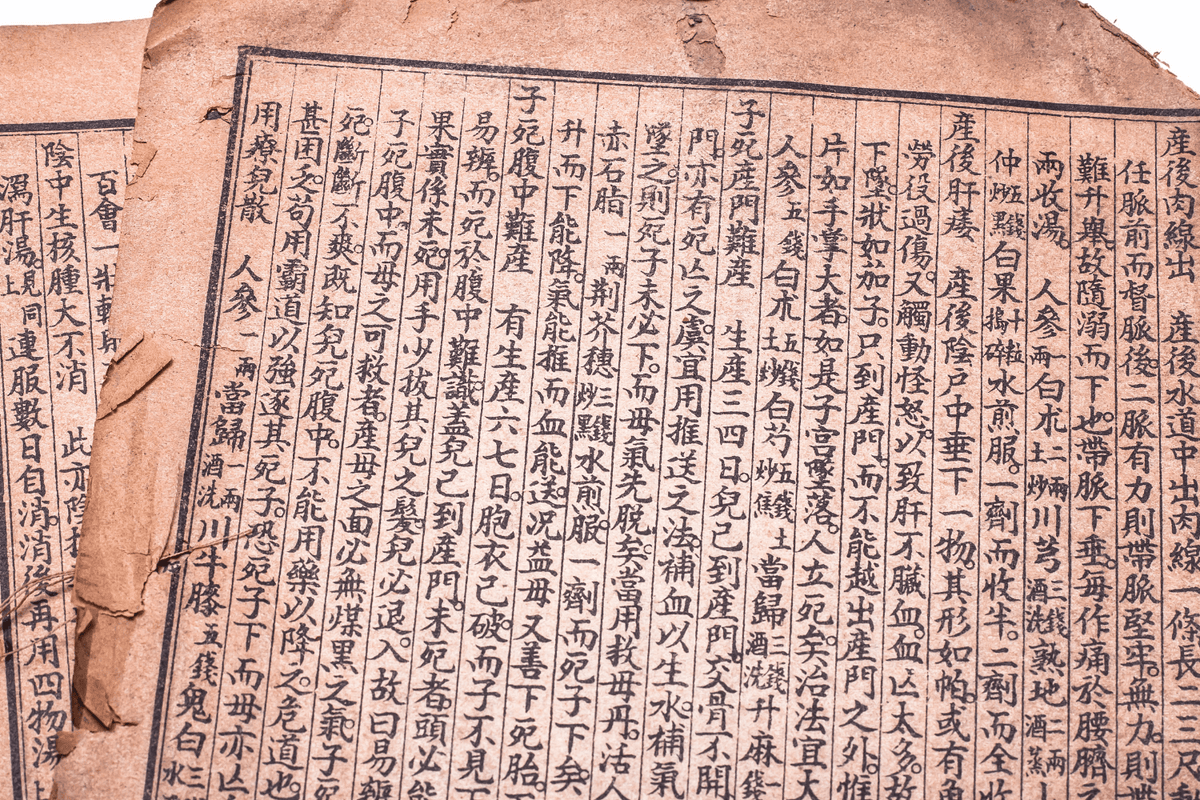 産後肉線出 産後水道中出肉線一條長二三尺
任脈前而督脈後。二脈有力則帶脈堅牢。無力。則帶
難升舉。故隋溺而下也。帶脈下垂。每作痛於腰臍
兩收湯。人參一兩白朮二兩土炒川芎三錢酒洗熟地二兩酒蒸
仲五錢炒黑白果十粒搗碎水煎服。一劑而收半。二劑而全收
産後肝痿 産後陰戶中垂下一物。其形如帕。或有角
勞役過傷。又觸動怪怒。以致肝不臟血。血亾太多。故
下墜。狀如茄子。只到產門。而不能越出産門之外。惟
片如手掌大者。如是子宮墜落。人立死矣。治法宜大
人參五錢白朮五錢土炒白芍五錢炒焦 土當歸三錢酒洗升麻一錢
子死産門難産 生産三四日。兒已到產門。交骨不開
門。亦有死亾之虞。宜用推送之法。補血以生水。補氣
墜之。則死子未必下。而母氣先脫矣。當用救母丹。活人
赤石脂一兩荊芥穗三錢炒黑水煎服。一劑而死子下矣。
升而下能降。氣能推而血能送。況益母又善下死胎。
子死腹中難産 有生産六七日。胞衣已破。而子不見下
易辨。而死於腹中難識。蓋兒已到產門。未死者。頭必能
果實係未死。用手少拔其兒之髮。兒必退。入故曰易辨
子死腹中。而母之可救者。産母之面必無煤黑之氣。子死
死。斷斷不爽。既知兒死腹中。不能用藥以降之。危道也
甚困乏。苟用霸道以強逐其死子。恐死子下而母亦亾
用療兒散 人參一兩當歸一兩酒洗川牛膝五錢鬼臼三
百會一壯
陰中生核腫大不消 此亦陰
瀉肝湯。見上同連服數日自消。消後再用四物湯